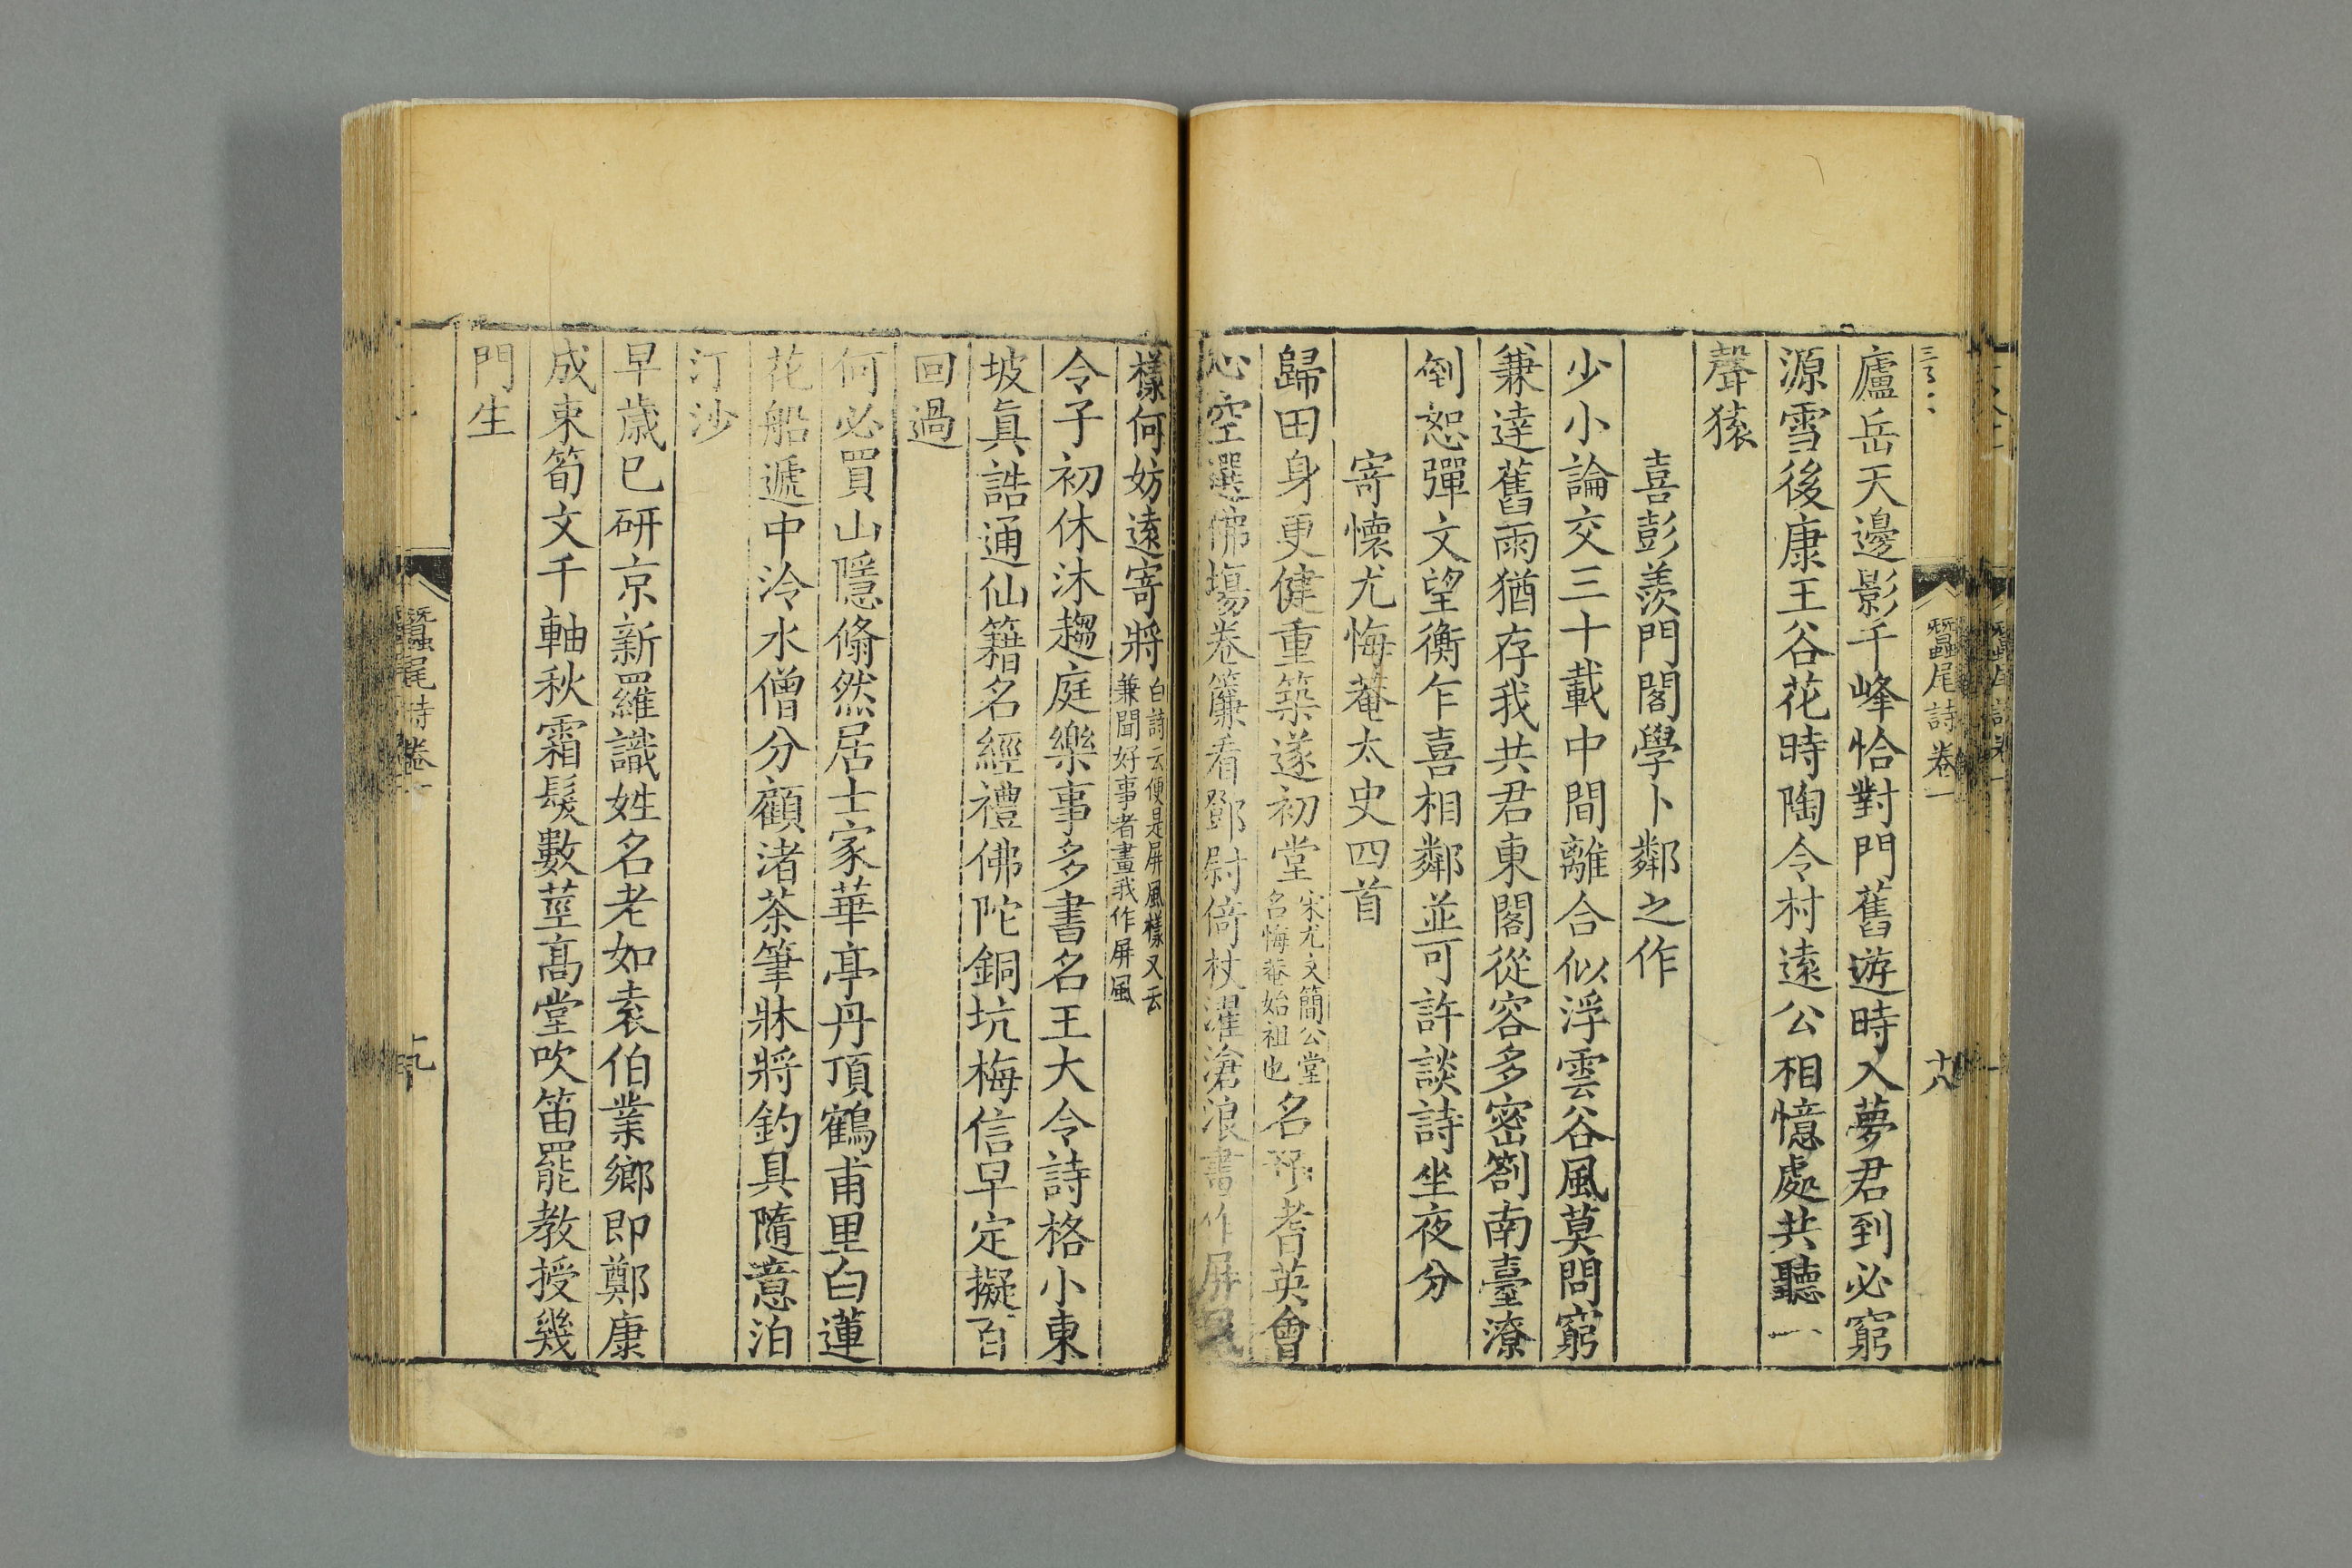 蠶尾詩卷一
十八
廬岳天邊影千峰恰對門舊遊時入夢君到必窮
源雪後康王谷花時陶令村遠公相憶處共聽一
聲猿
喜彭羨門閣學卜鄰之作
少小論交三十載中間離合似浮雲谷風莫問窮
兼達舊雨猶存我共君東閣從容多密劄南臺潦
倒恕彈文望衡乍喜相鄰並可許談詩坐夜分
寄懷尤悔菴太史四首
歸田身更健重築遂初堂宋尤文簡公堂名悔菴始祖也名預耆英會
心空選佛場卷簾看鄧尉倚杖濯滄浪畫作屏風
樣何妨遠寄將白詩云便是屏風樣又云兼聞好事者畫我作屏風
令子初休沐趨庭樂事多書名王大令詩格小東
坡真誥通仙籍名經禮佛陀銅坑梅信早定擬百
回過
何必買山隱翛然居士家華亭丹頂鶴甫里白蓮
花船遞中泠水僧分顧渚茶筆牀將釣具隨意泊
汀沙
早歲已研京新羅識姓名老如袁伯業鄉即鄭康
成束筍文千軸秋霜鬢數莖高堂吹笛罷教授幾
門生
蠶尾詩卷一
十九